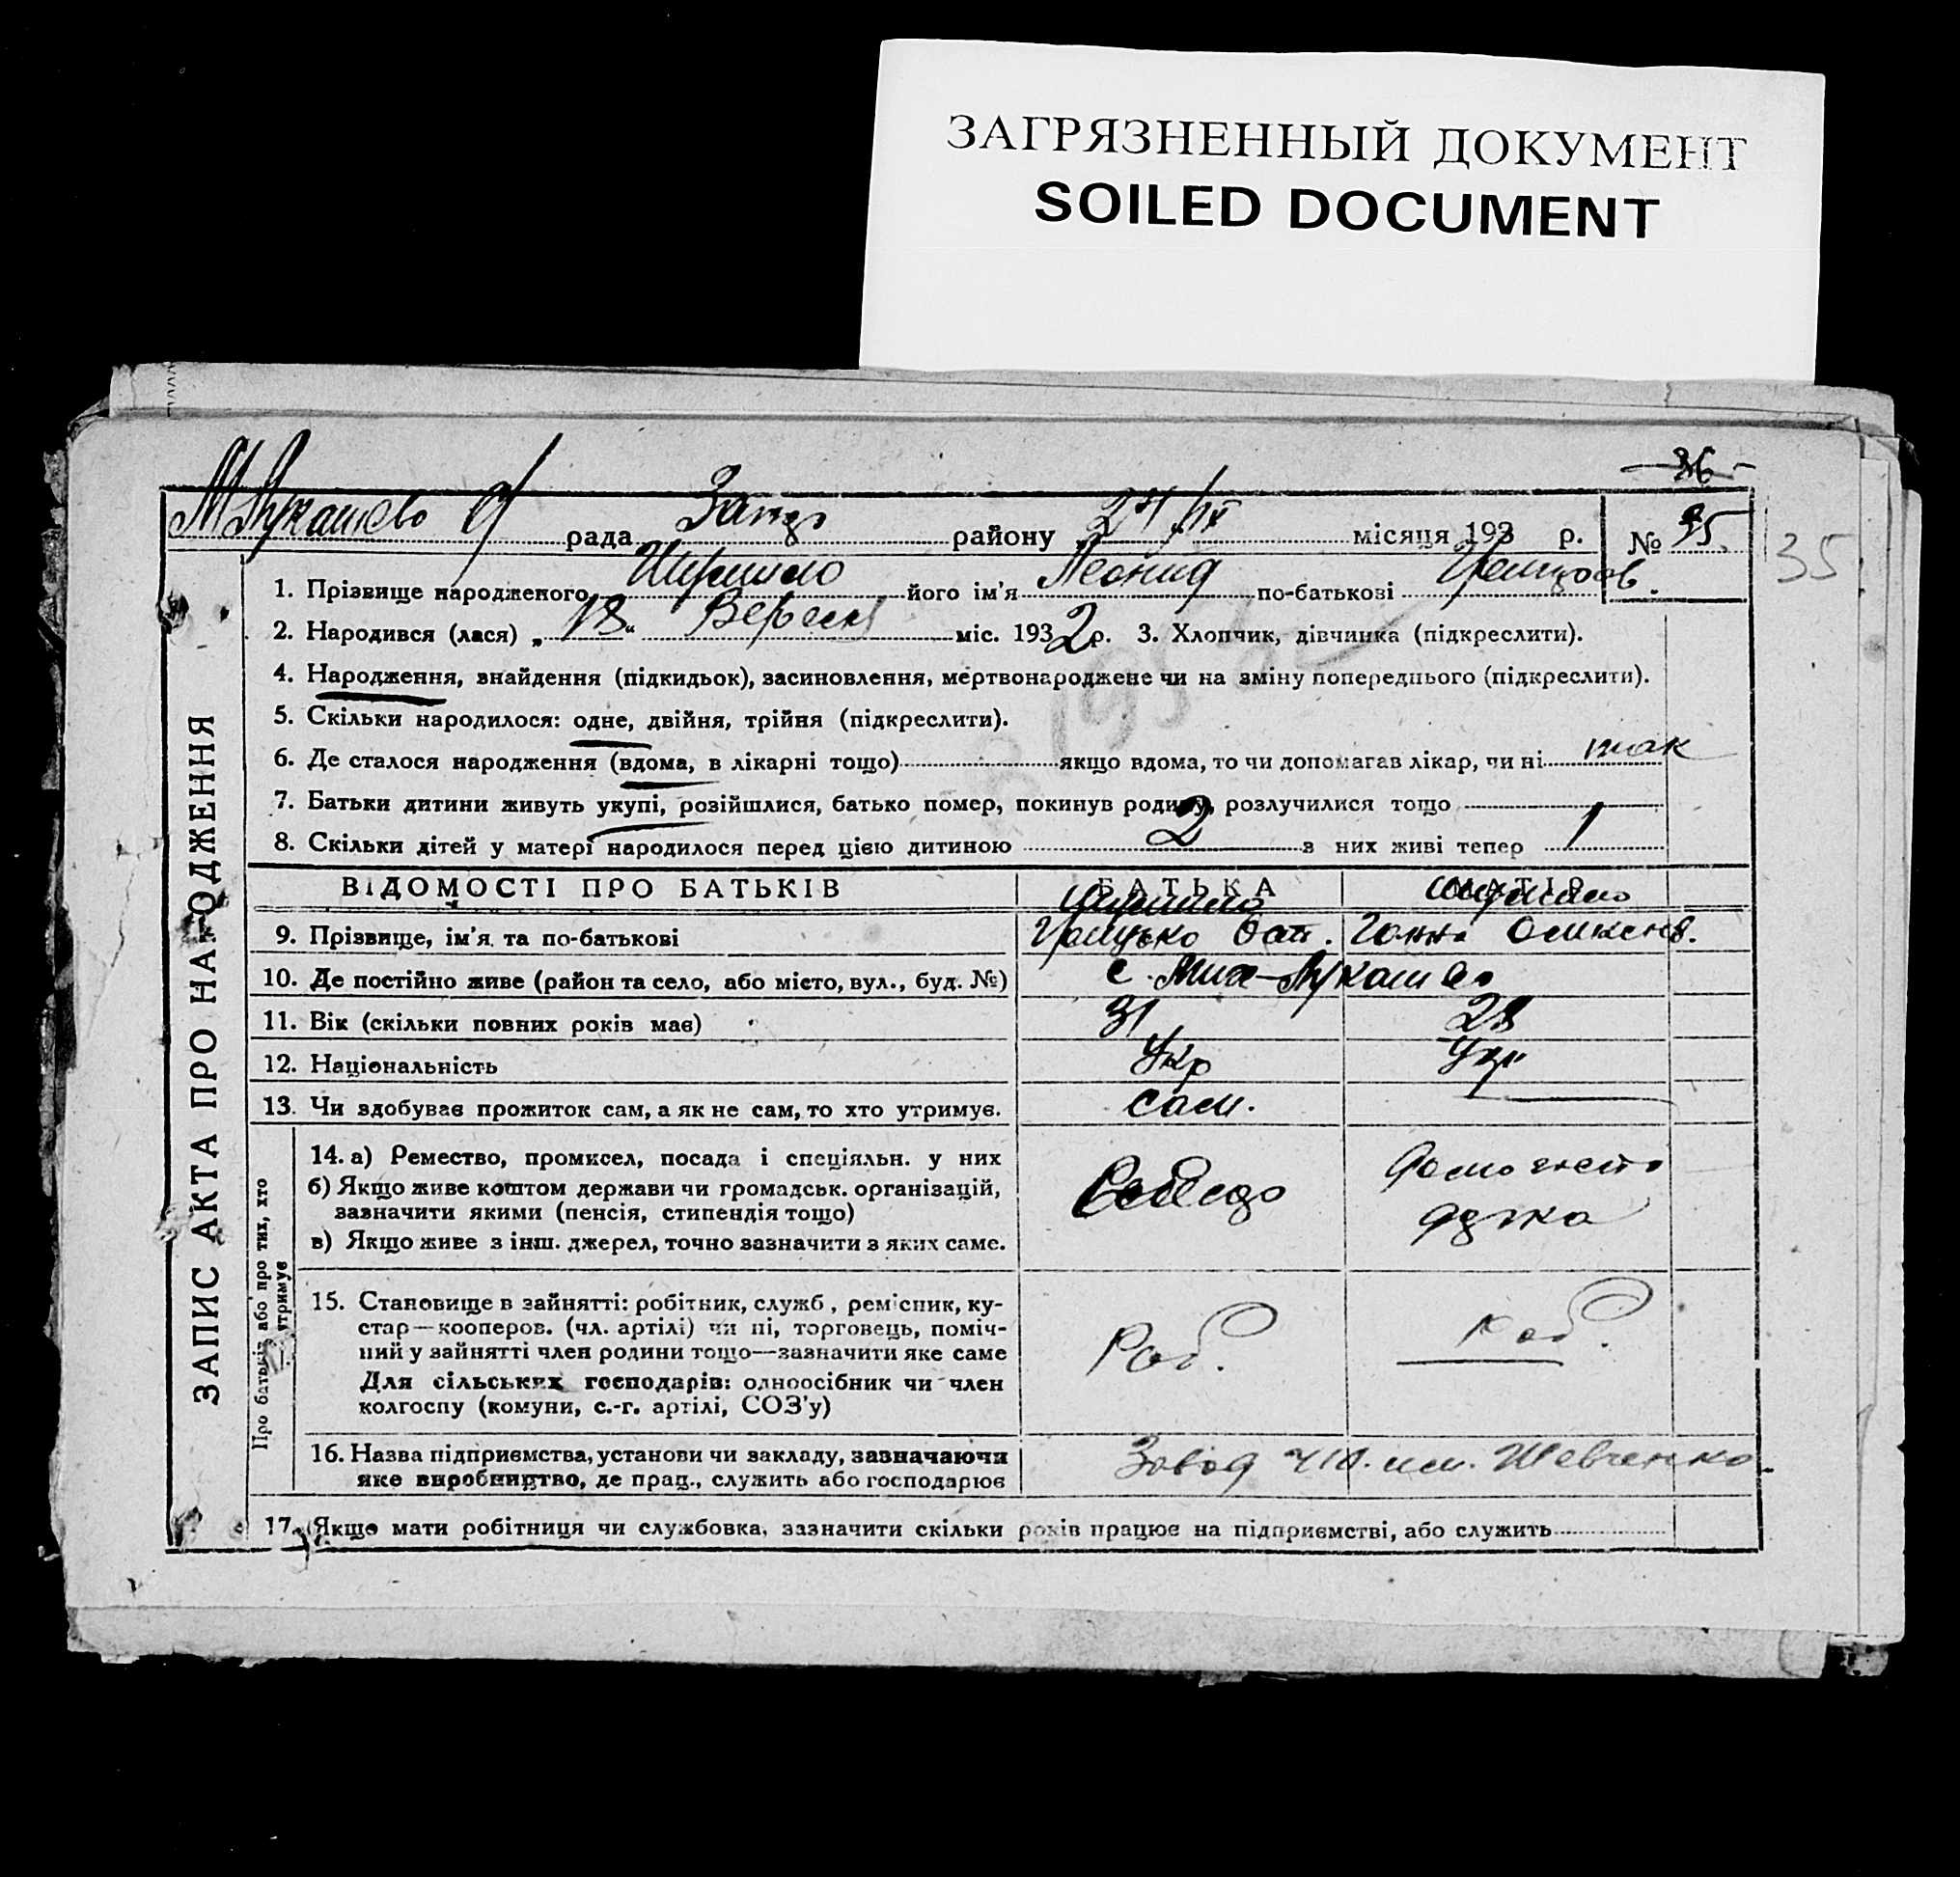 ЗАГРЯЗНЕННЫЙ ДОКУМЕНТ
SOILED DOCUMENT
36
рада района 24/IX місяця 193 р. № 35. 35
1. Прізвище народженого його ім'я Леонид по-батькові
2. Народився (лася) „18“ Вересня міс. 1932 р. 3. Хлопчик, дівчинка (підкреслити).
4. Народження, знайдення (підкидьок), засиновлення, мертвонароджене чи на зміну попереднього (підкреслити).
5. Скільки народилося: одне, двійня, трійня (підкреслити).
6. Де сталося народження (вдома, в лікарні тощо) якщо вдома, то чи допомагав лікар, чи ні так
7. Батьки дитини живуть укупі, розійшлися, батько помер, покинув родину, розлучилися тощо
8. Скільки дітей у матері народилося перед цією дитиною 2 з них живі тепер 1
ВІДОМОСТІ ПРО БАТЬКІВ БАТЬКА МАТІР
9. Прізвище, ім'я та по-батькові
10. Де постійно живе (район та село, або місто, вул., буд. №) с.
11. Вік (скільки повних років має) 31 28
12. Національність Укр Укр
13. Чи здобуває прожиток сам, а як не сам, то хто утримує. сам.
14. а) Ремество, промисел, посада і спеціяльн. у них
б) Якщо живе коштом держави чи громадськ. організацій,
зазначити якими (пенсія, стипендія тощо)
в) Якщо живе з інш. джерел, точно зазначити з яких саме.
15. Становище в зайнятті: робітник, служб, ремісник, ку-
стар—кооперов. (чл. артілі) чи ні, торговець, поміч-
ний у зайнятті член родини тощо—зазначити яке саме
Роб. Роб.
Для сільських господарів: одноосібник чи член
колгоспу (комуни, с.-г. артілі, СОЗ'у)
16. Назва підприємства, установи чи закладу, зазначаючи
яке виробництво, де прац., служить або господарює
Завод им. Шевченко.
17. Якщо мати робітниця чи службовка, зазначити скільки років працює на підприємстві, або служить
ЗАПИС АКТА ПРО НАРОДЖЕННЯ
Про батьків або про тих, хто
їх утримує